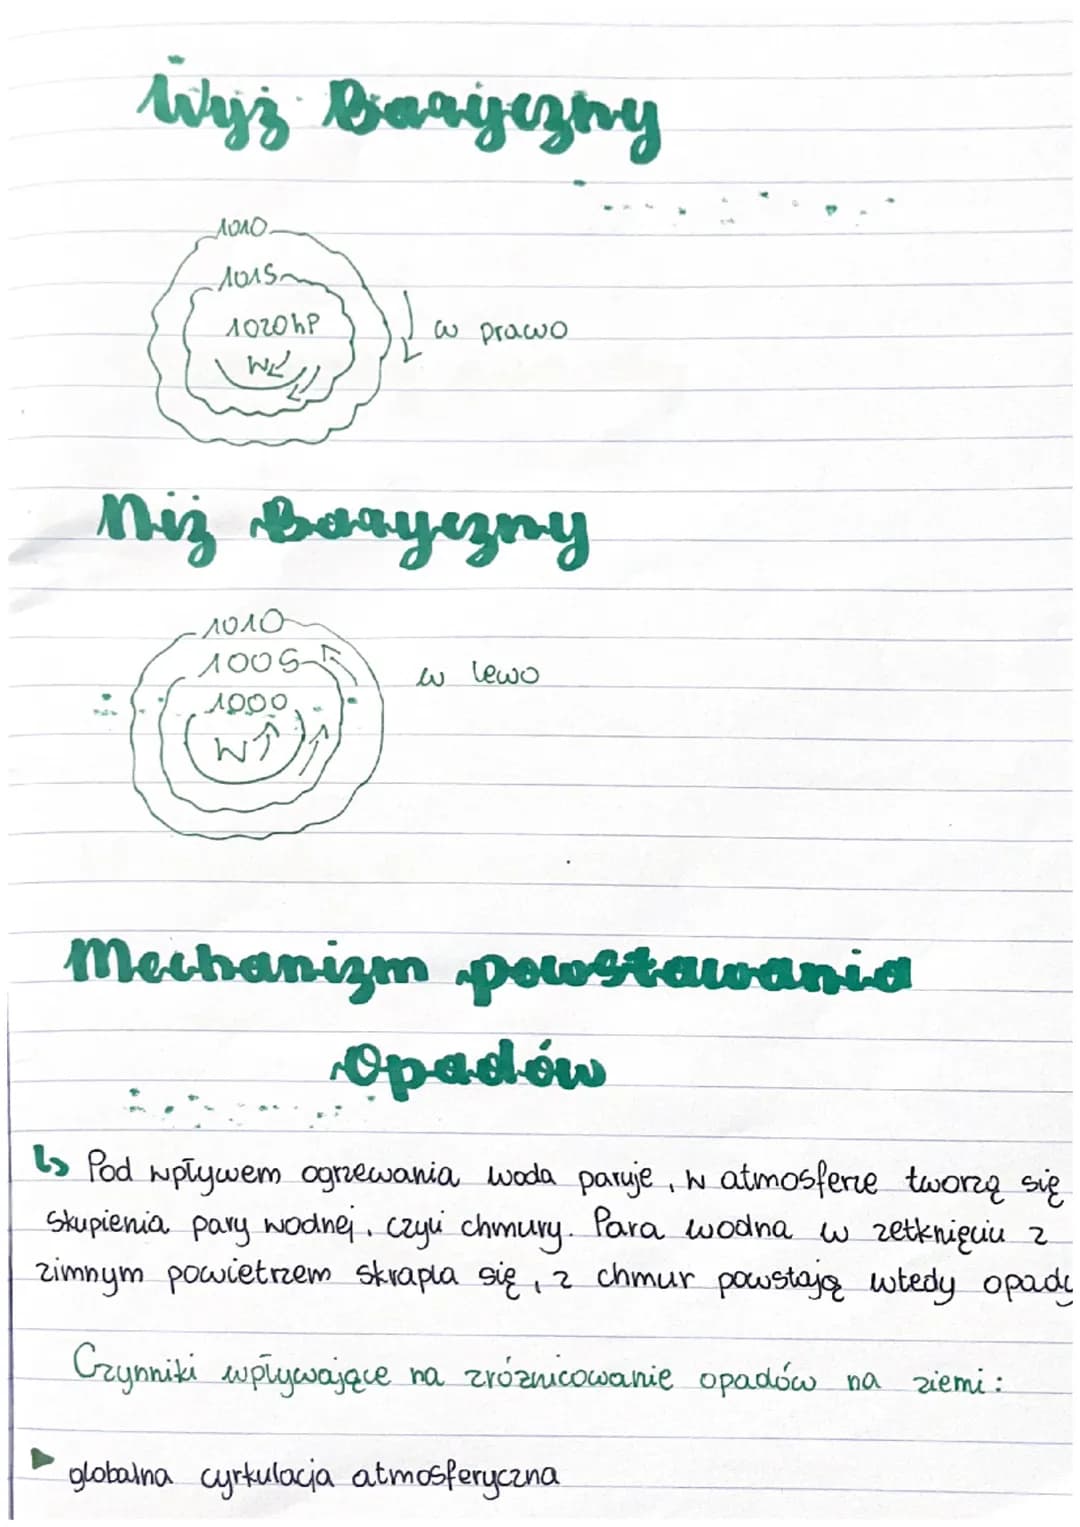 Wyż Baryczny
1010
1015
1020 hP
W
w prawo
Niż Baryczny
1010
1005
1000
W
w lewo
Mechanizm powstawania
Opadów
↳ Pod wpływem ogrzewania woda paruje, w atmosferze tworzą się
skupienia pary wodnej, czyli chmury. Para wodna w zetknięciu z
zimnym powietrzem skrapla się, z chmur powstają wtedy opady
Czynniki wpływające na zróżnicowanie opadów na ziemi:
▶ globalna cyrkulacja atmosferyczna